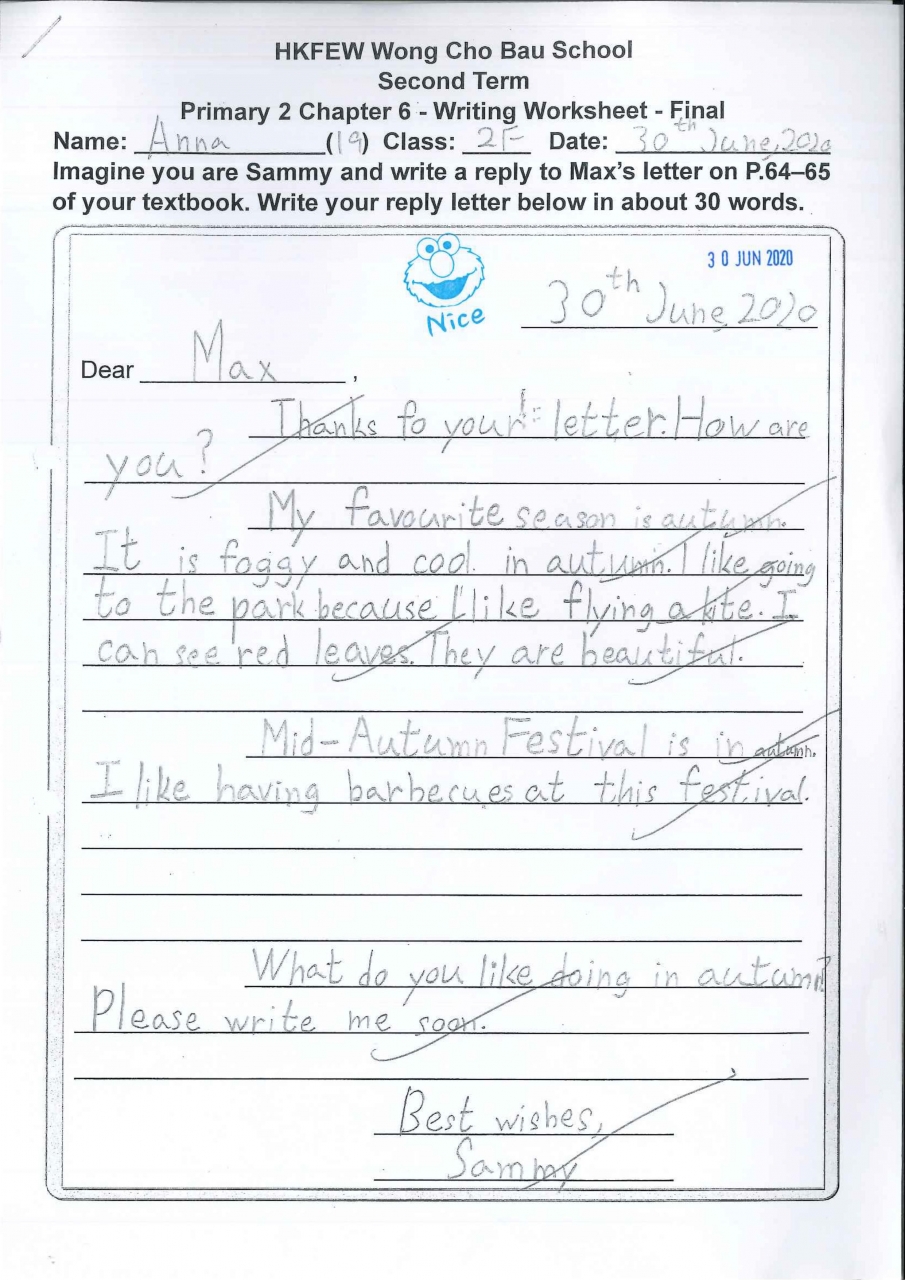 HKFEW Wong Cho Bau School
Second Term
Primary 2 Chapter 6 - Writing Worksheet - Final
Name: Anna (19) Class: 2F Date: 30th June, 2020
Imagine you are Sammy and write a reply to Max's letter on P.64–65
of your textbook. Write your reply letter below in about 30 words.
30 JUN 2020
Nice
30th June, 2020
Dear Max,
Thanks fo your letter. How are
you?
My favourite season is autumn.
It is foggy and cool in autumn. I like going
to the park because I like flying a kite. I
can see red leaves. They are beautiful.
Mid-Autumn Festival is in autumn.
I like having barbecues at this festival.
What do you like doing in autumn?
Please write me soon.
Best wishes,
Sammy